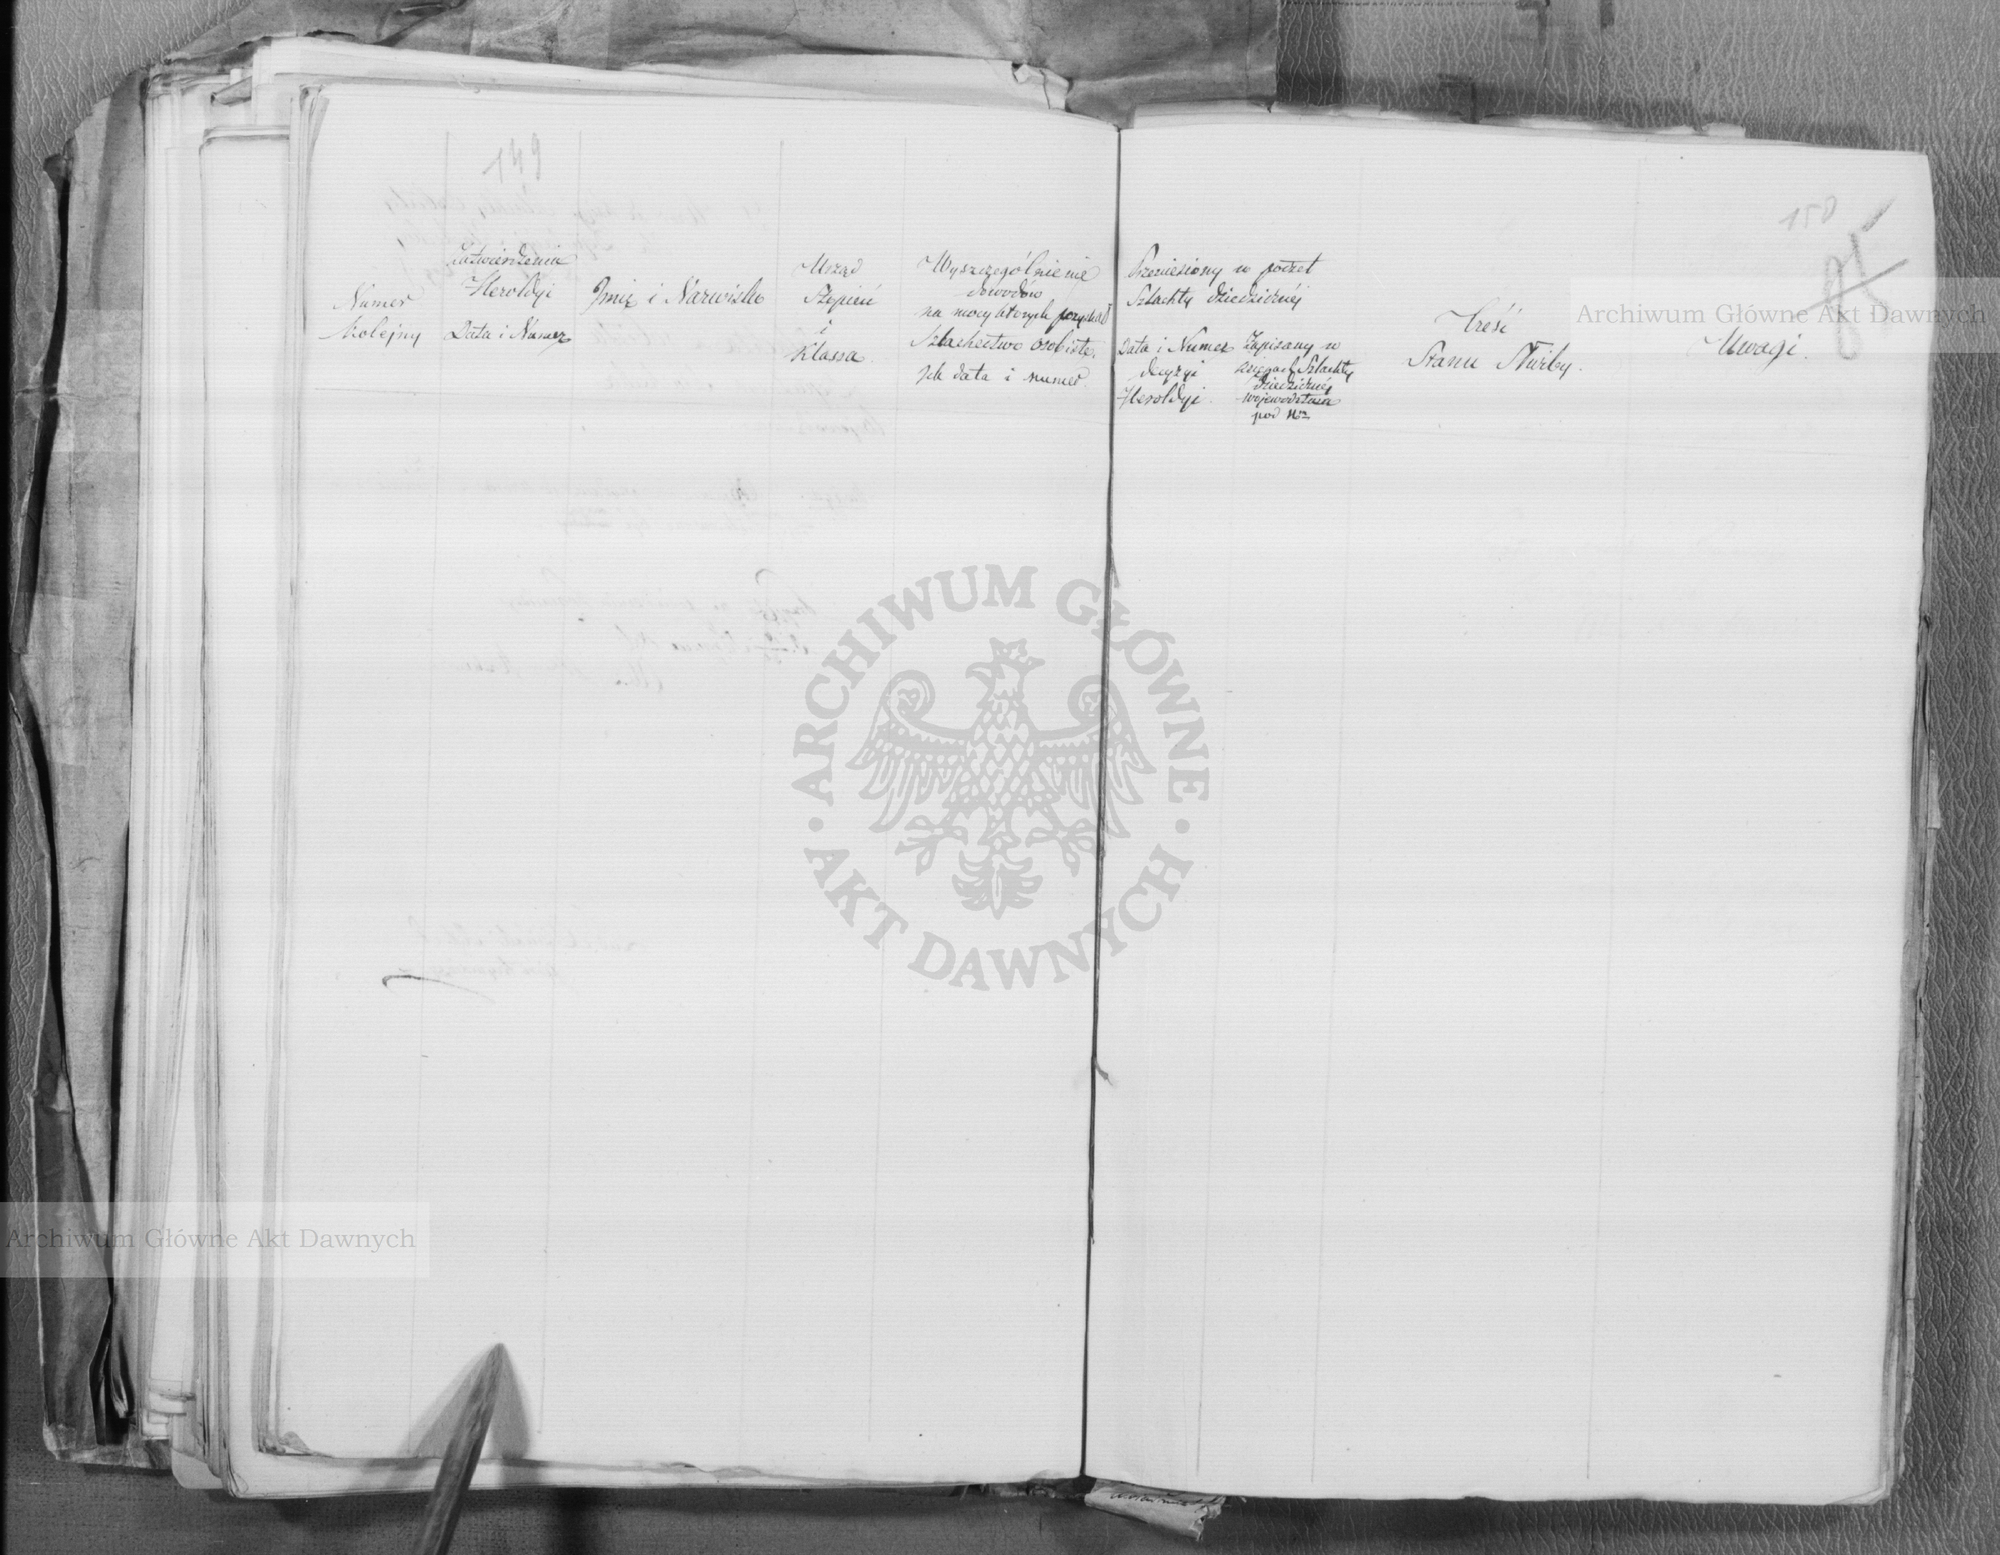 149
Zatwierdzenia
Heroldyi
Data i Numer
Numer
kolejny
Imię i Nazwisko
Urząd
Stopień
i
Klassa
Wyszczególnienie
dowodów
na mocy których pozyskał
Szlachectwo osobiste,
Ich data i numer.
150
85
Przeniesiony w poczet
Szlachty dziedzicznéj
Data i Numer
decyzyi
Heroldyi.
Zapisany w
księgach Szlachty
dziedzicznéj
województwa
pod Nrm
Treść
Stanu Służby.
Uwagi.
Archiwum Główne Akt Dawnych
ARCHIWUM GŁÓWNE
AKT DAWNYCH
Archiwum Główne Akt Dawnych